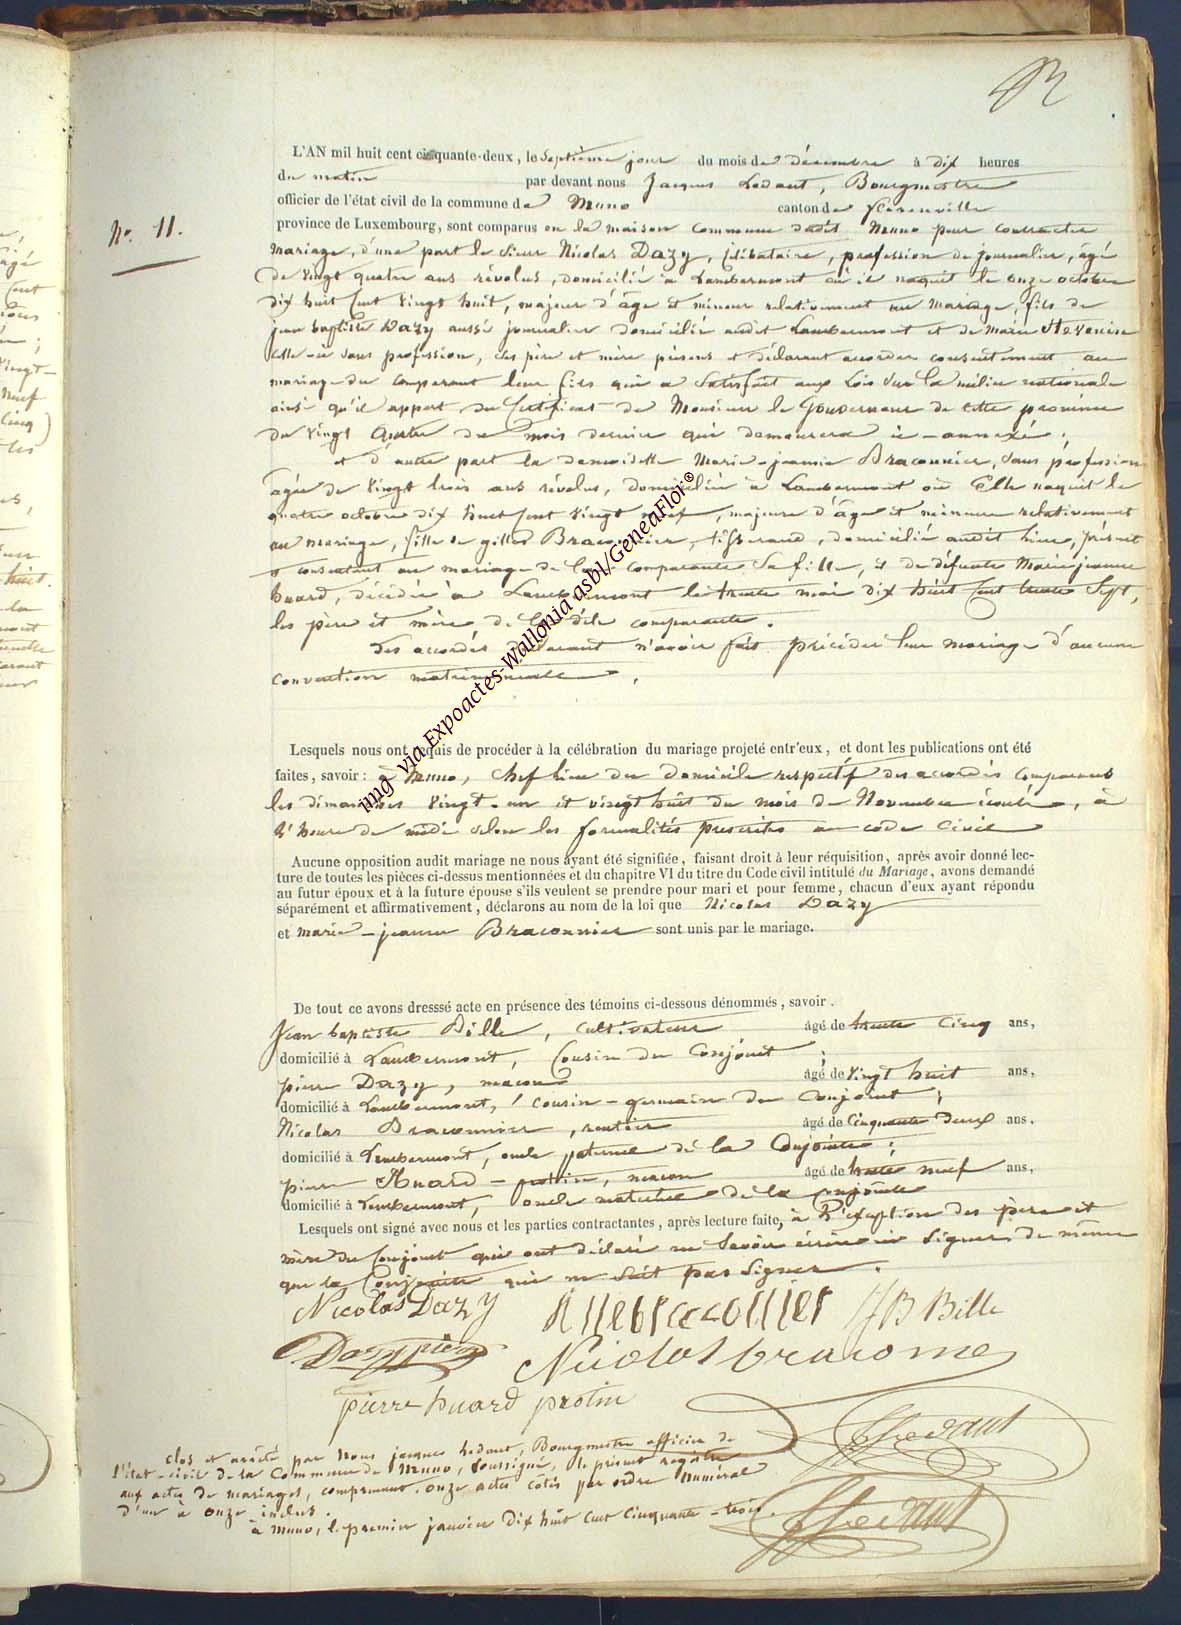 N° 11.
L'AN mil huit cent cinquante-deux, le Septième jour du mois de décembre à dix heures
du matin par devant nous Jacques Ledant, Bourgmestre
officier de l'état civil de la commune de Muno canton de florenville
province de Luxembourg, sont comparus en la maison commune dudit Muno pour contracter
mariage, d'une part le sieur Nicolas Dazy, Célibataire, profession de journalier, âgé
de vingt quatre ans révolus, domicilié à Lambermont où il naquit le onze octobre
dix huit cent vingt huit, majeur d'âge et mineur relativement au mariage, fils de
jean baptiste Dazy aussi journalier domicilié audit Lambermont et de Marie Stevenin
celle-ci sans profession, ces père et mère présens et déclarant accorder consentement au
mariage du comparant leur fils qui a satisfait aux lois sur la milice nationale
ainsi qu'il appert du Certificat de Monsieur le Gouverneur de cette province
du vingt quatre du mois dernier qui demeurera ci-annexé ;
et d'autre part la demoiselle Marie-jeanne Braconnier, sans profession
âgée de vingt trois ans révolus, domiciliée à Lambermont où Elle naquit le
quatre octobre dix huit cent vingt neuf, majeure d'âge et mineure relativement
au mariage, fille de gilles Braconnier, tisserand, domicilié audit lieu, présent
et consentant au mariage de la comparante sa fille, et de défunte Marie jeanne
huard, décédée à Lambermont le trente mai dix huit cent trente sept,
les père et mère de la dite comparante.
Les accordés déclarant n'avoir fait précéder leur mariage d'aucune
convention matrimoniale.
Lesquels nous ont requis de procéder à la célébration du mariage projeté entr'eux, et dont les publications ont été
faites, savoir : à Muno, chef lieu du domicile respectif des accordés comparans
les dimanches vingt-un et vingt huit du mois de Novembre écoulé, à
l'heure de midi selon les formalités prescrites au code civil
Aucune opposition audit mariage ne nous ayant été signifiée, faisant droit à leur réquisition, après avoir donné lec-
ture de toutes les pièces ci-dessus mentionnées et du chapitre VI du titre du Code civil intitulé du Mariage, avons demandé
au futur époux et à la future épouse s'ils veulent se prendre pour mari et pour femme, chacun d'eux ayant répondu
séparément et affirmativement, déclarons au nom de la loi que Nicolas Dazy
et marie-jeanne Braconnier sont unis par le mariage.
De tout ce avons dresssé acte en présence des témoins ci-dessous dénommés, savoir.
Jean baptiste Bille, cultivateur âgé de trente cinq ans,
domicilié à Lambermont, Cousin du Conjoint ;
pierre Dazy, maçon âgé de vingt huit ans,
domicilié à Lambermont, cousin-germain du Conjoint ;
Nicolas Braconnier, rentier âgé de cinquante deux ans.
domicilié à Lambermont, oncle paternel de la Conjointe ;
pierre Huard-protin, maçon âgé de trente neuf ans,
domicilié à Lambermont, oncle maternel de la conjointe
Lesquels ont signé avec nous et les parties contractantes, après lecture faite, à l'exception des père et
mère du Conjoint qui ont déclaré ne savoir écrire ni signer de même
que la Conjointe qui ne sait pas signer.
Nicolas Dazy Gillebraconnier JB Bille
Dazy pierre Nicolas braconnie
pierre huard protin
JLedant
clos et arrêté par nous jacques Ledant, Bourgmestre officier de
l'état-civil de la Commune de Muno, soussigné, le présent registre
aux actes de mariages, comprenant onze actes côtés par ordre numéral
d'un à onze inclus.
à Muno, le premier janvier dix huit cent cinquante-trois.
JLedant
img via Expoactes-Wallonia asbl/GeneaFloi©